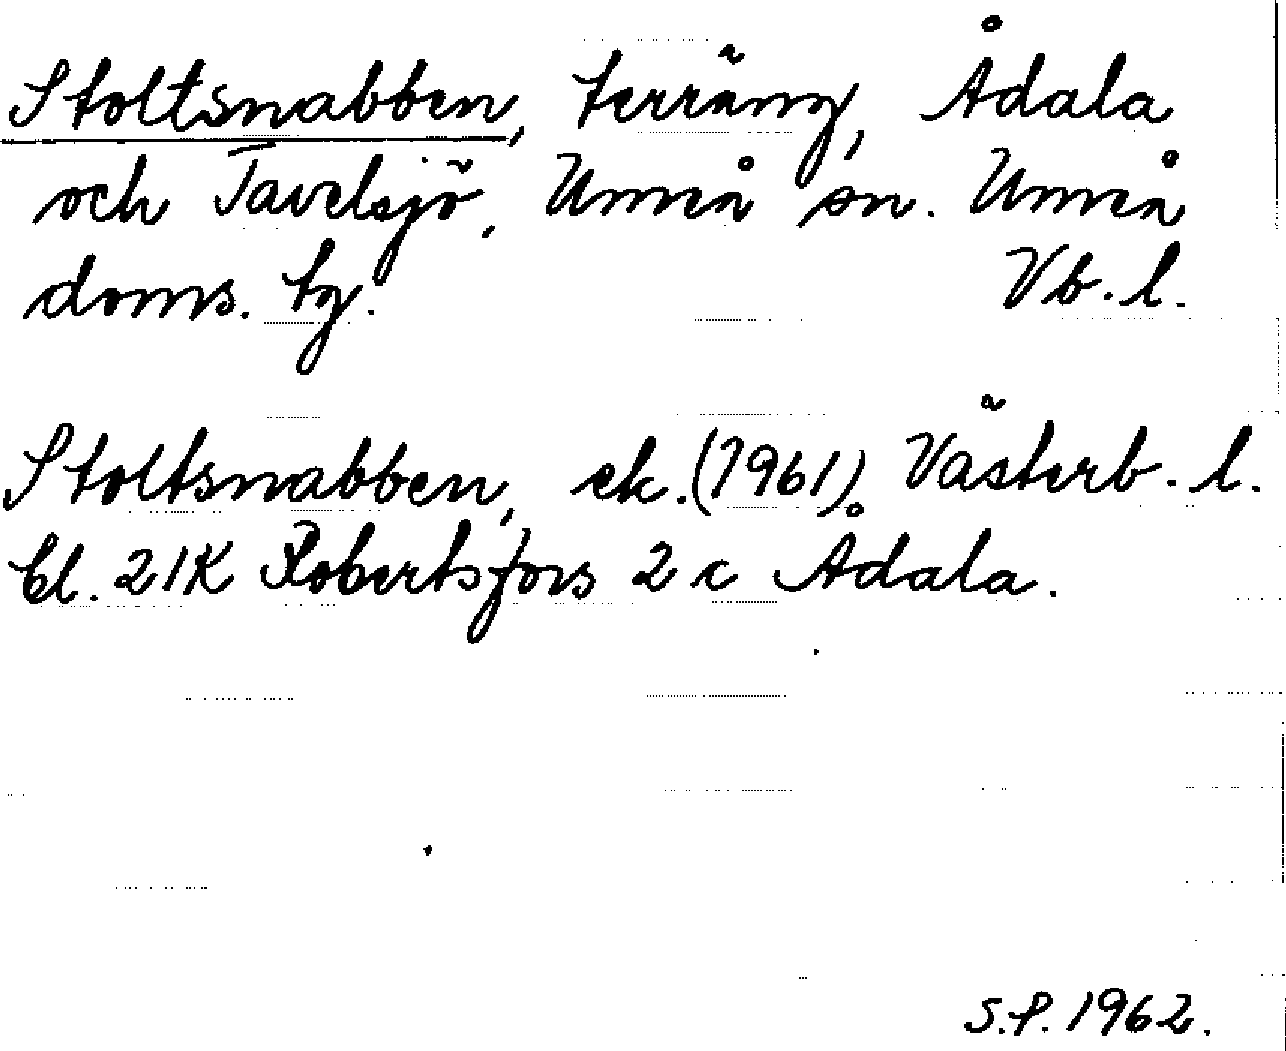 Stoltsnabben, terräng, Ådala
och Tavelsjö, Umeå sn. Umeå
doms. tg. Vb. l.
Stoltsnabben, ek. (1961). Västerb. l.
bl. 21K Robertsfors 2 c Ådala.
S.P. 1962.